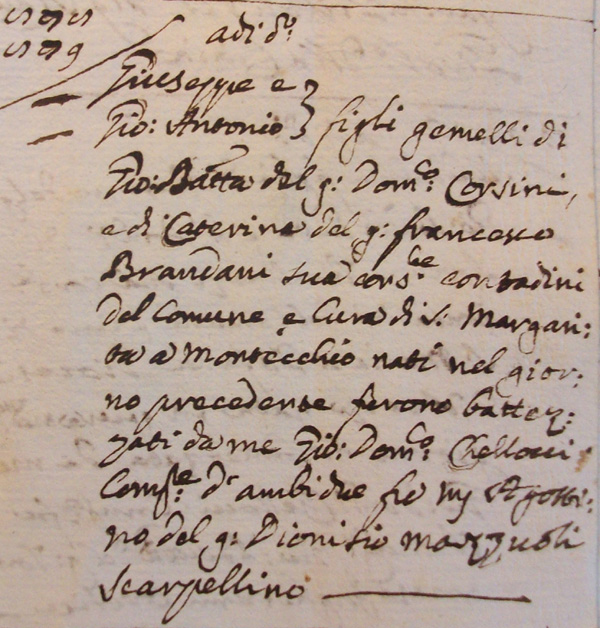 adi d.º
Giuseppe e
Gio: Antonio } figli gemelli di
Gio: Batta del q: Dom.co Corsini,
e di Caterina del q: francesco
Brandani sua cons.te contadini
del Comune e Cura di S: Margari:
ta a Montecchio nati nel gior:
no precedente furono battez:
zati da me Gio: Dom.co
Comp.re d'ambidue fu Agosti:
no del q: Dionisio Mazzuoli
scarpellino